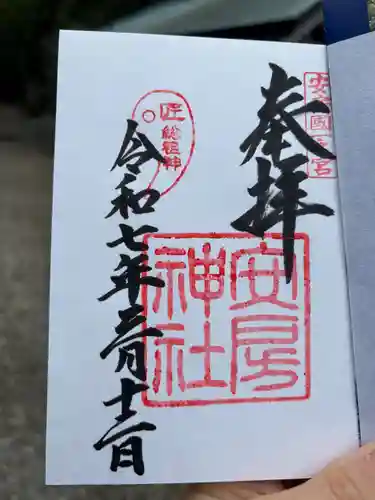 奉拝
安房國一之宮
安房神社
匠
総祖神
令和七年三月十二日